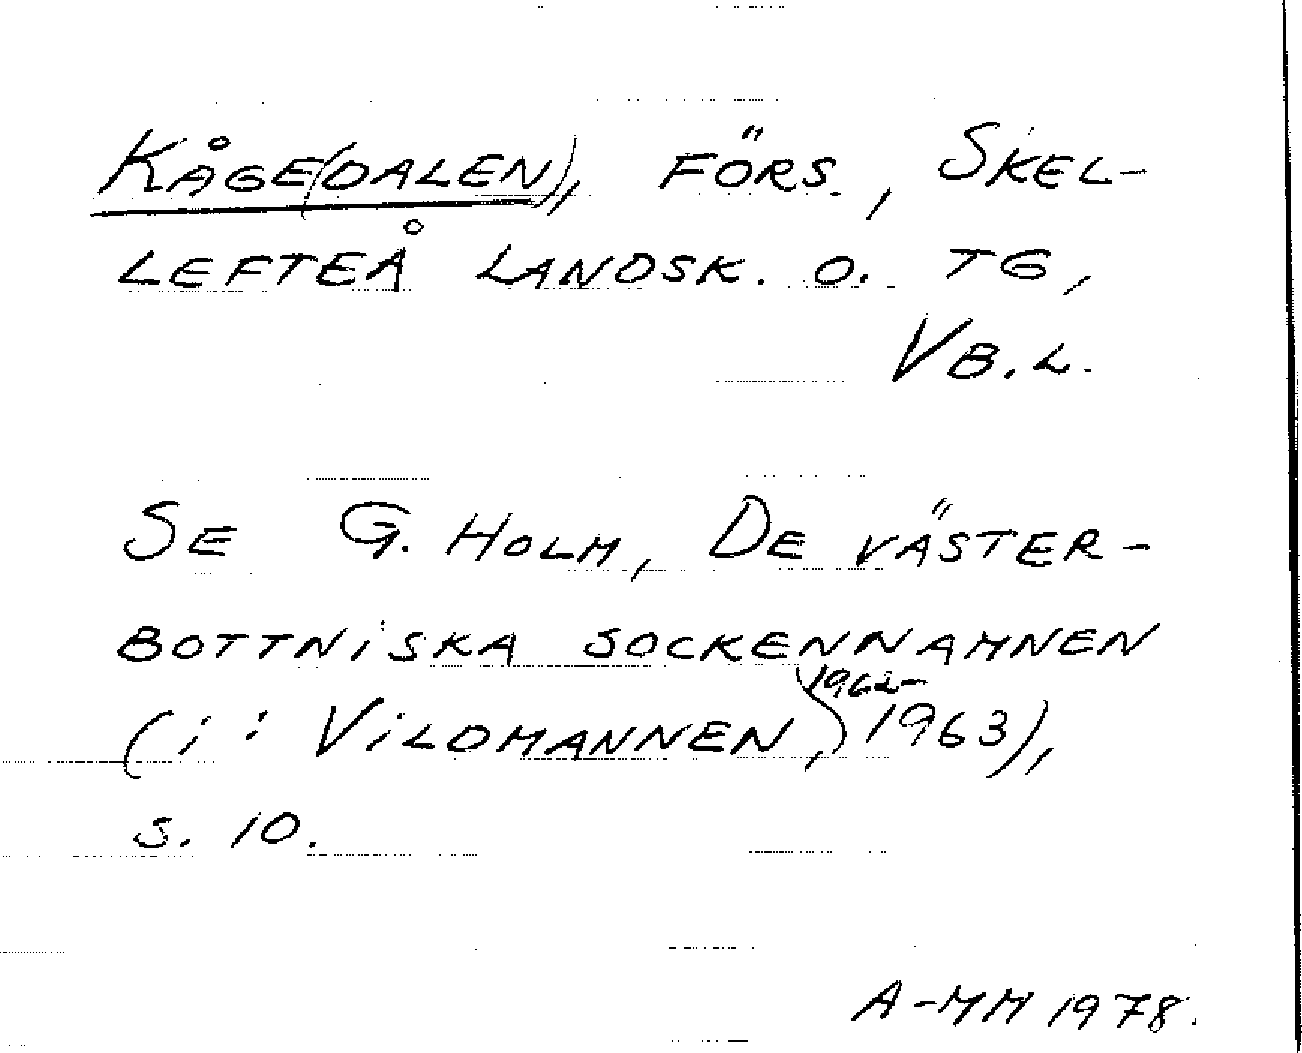 Kåge(dalen), förs., Skel-
lefteå landsk. o. tg,
Vb.l.
Se G. Holm, De väster-
bottniska sockennamnen
(i: Vildmannen, 1962-1963),
s. 10.
A-MM 1978.